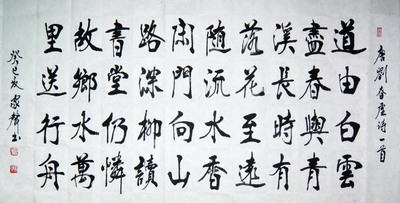 唐劉春虛詩一首
道由白雲
盡春與青
溪長時有
落花至遠
随流水香
閑門向山
路深柳讀
書堂仍憐
故鄉水萬
里送行舟
癸巳 家聲书